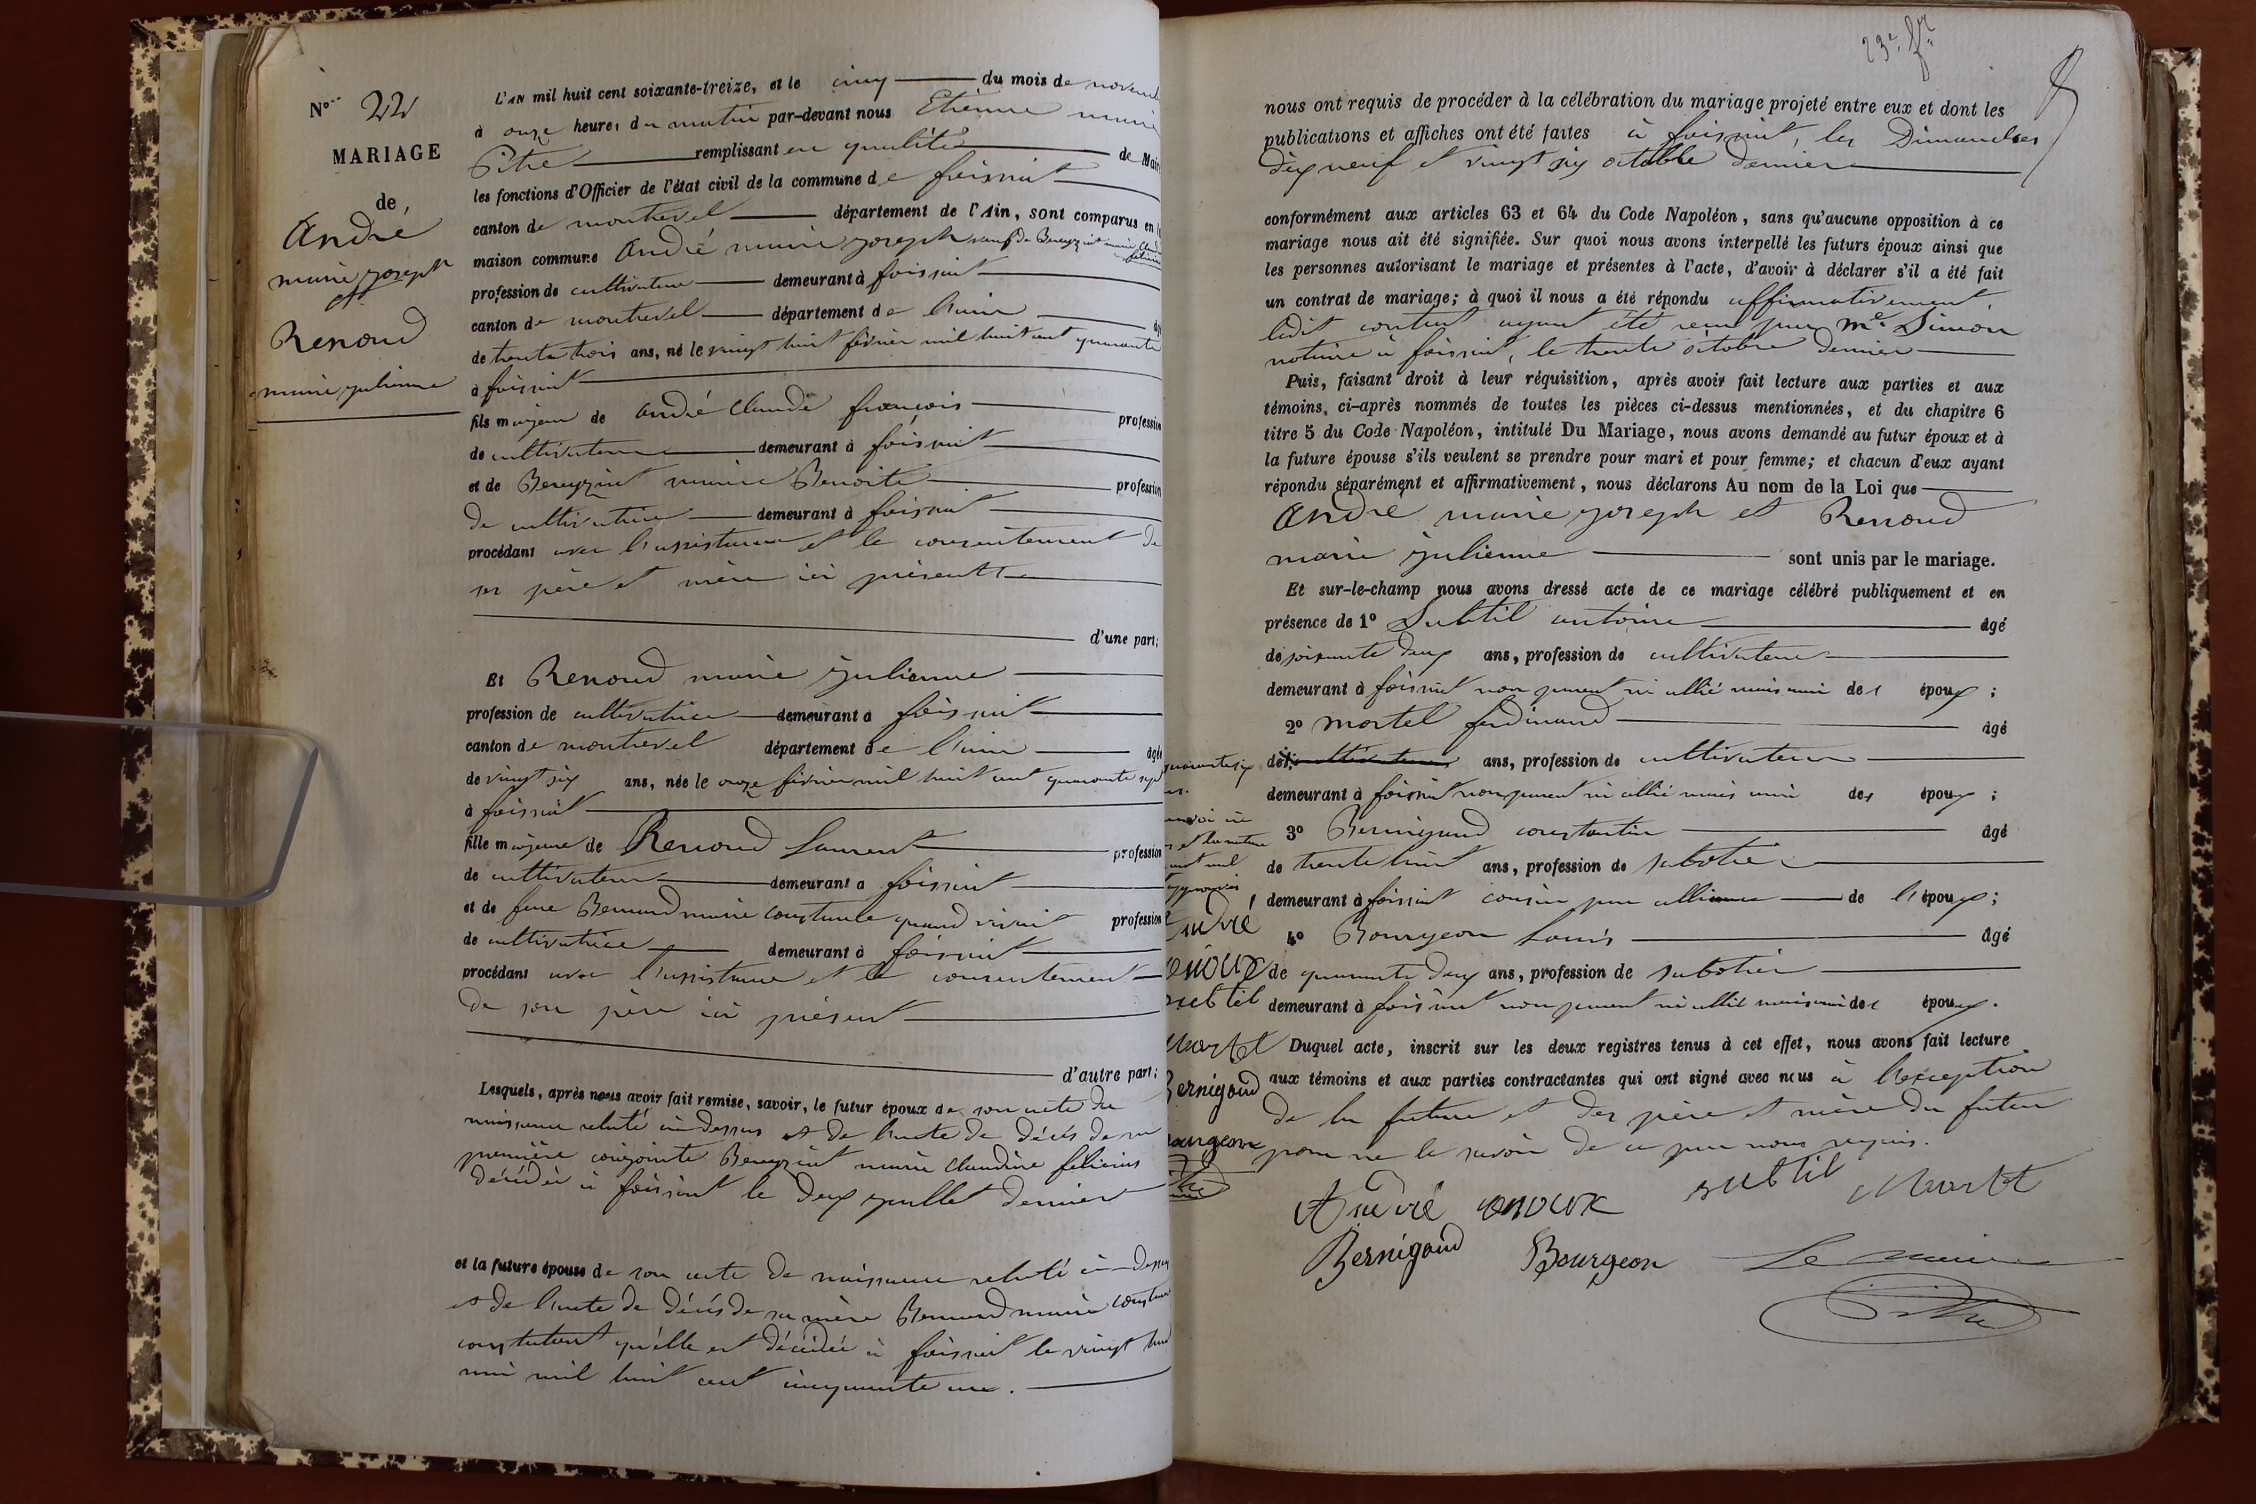 N° 22
MARIAGE
de
André
marie joseph
et
Renoud
marie julienne
L'AN mil huit cent soixante-treize, et le cinq du mois de novemb
à onze heures du matin par-devant nous Etienne marie
Pitre remplissant en qualité de Mair
les fonctions d'Officier de l'état civil de la commune de foissiat
canton de montrevel département de l'Ain, sont comparus en la
maison commune André marie joseph veuf de Bereyziat marie Claudine
félicie
profession de cultivateur demeurant à foissiat
canton de montrevel département de l'ain âgé
de trente trois ans, né le vingt huit février mil huit cent quarante
à foissiat
fils majeur de André Claude françois profession
de cultivateur demeurant à foissiat
et de Bereyziat marie Benoite profession
de cultivatrice demeurant à foissiat
procédant avec l'assistance et le consentement de
ses père et mère ici présents
d'une part;
Et Renoud marie julienne
profession de cultivatrice demeurant à foissiat
canton de montrevel département de l'ain âgée
de vingt six ans, née le onze février mil huit cent quarante sept
à foissiat
fille majeure de Renoud Laurent profession
de cultivateur demeurant à foissiat
et de feue Bernard marie constance quand vivait profession
de cultivatrice demeurant à foissiat
procédant avec l'assistance et le consentement
de son père ici présent
d'autre part;
Lesquels, après nous avoir fait remise, savoir, le futur époux de son acte de
naissance relaté ci dessus et de l'acte de décés de sa
première conjointe Bereyziat marie Claudine félicie
décédée à foissiat le deux juillet dernier
et la future épouse de son acte de naissance relaté ci-dessus
et de l'acte de décés de sa mère Bernard marie constance
constatant qu'elle est décédée à foissiat le vingt huit
mai mil huit cent cinquante un.
quarante six
André
enoux
subtil
Martel
Bernigaud
ourgeon
23e. ft
nous ont requis de procéder à la célébration du mariage projeté entre eux et dont les
publications et affiches ont été faites à foissiat, les Dimanches
dix neuf et vingt six octobre dernier
conformément aux articles 63 et 64 du Code Napoléon, sans qu'aucune opposition à ce
mariage nous ait été signifiée. Sur quoi nous avons interpellé les futurs époux ainsi que
les personnes autorisant le mariage et présentes à l'acte, d'avoir à déclarer s'il a été fait
un contrat de mariage; à quoi il nous a été répondu affirmativement,
ledit contrat ayant été reçu par Me. Simon
notaire à foissiat, le trente octobre dernier
Puis, faisant droit à leur réquisition, après avoir fait lecture aux parties et aux
témoins, ci-après nommés de toutes les pièces ci-dessus mentionnées, et du chapitre 6
titre 5 du Code Napoléon, intitulé Du Mariage, nous avons demandé au futur époux et à
la future épouse s'ils veulent se prendre pour mari et pour femme; et chacun d'eux ayant
répondu séparément et affirmativement, nous déclarons Au nom de la Loi que
André marie joseph et Renoud
marie julienne sont unis par le mariage.
Et sur-le-champ nous avons dressé acte de ce mariage célébré publiquement et en
présence de 1° Subtil antoine âgé
de soixante deux ans, profession de cultivateur
demeurant à foissiat non parent ni allié mais ami des époux;
2° Martel ferdinand âgé
de cultivateur ans, profession de cultivateur
demeurant à foissiat non parent ni allié mais ami des époux;
3° Bernigaud constantin âgé
de trente huit ans, profession de sabotier
demeurant à foissiat cousin par alliance de l'époux;
4° Bourgeon Louis âgé
de quarante deux ans, profession de sabotier
demeurant à foissiat non parent ni allié mais ami des époux.
Duquel acte, inscrit sur les deux registres tenus à cet effet, nous avons fait lecture
aux témoins et aux parties contractantes qui ont signé avec nous à l'exception
de la future et des père et mère du futur
pour ne le savoir de ce par nous requis.
André enoux subtil Martel
Bernigaud Bourgeon Le maire
Pitre